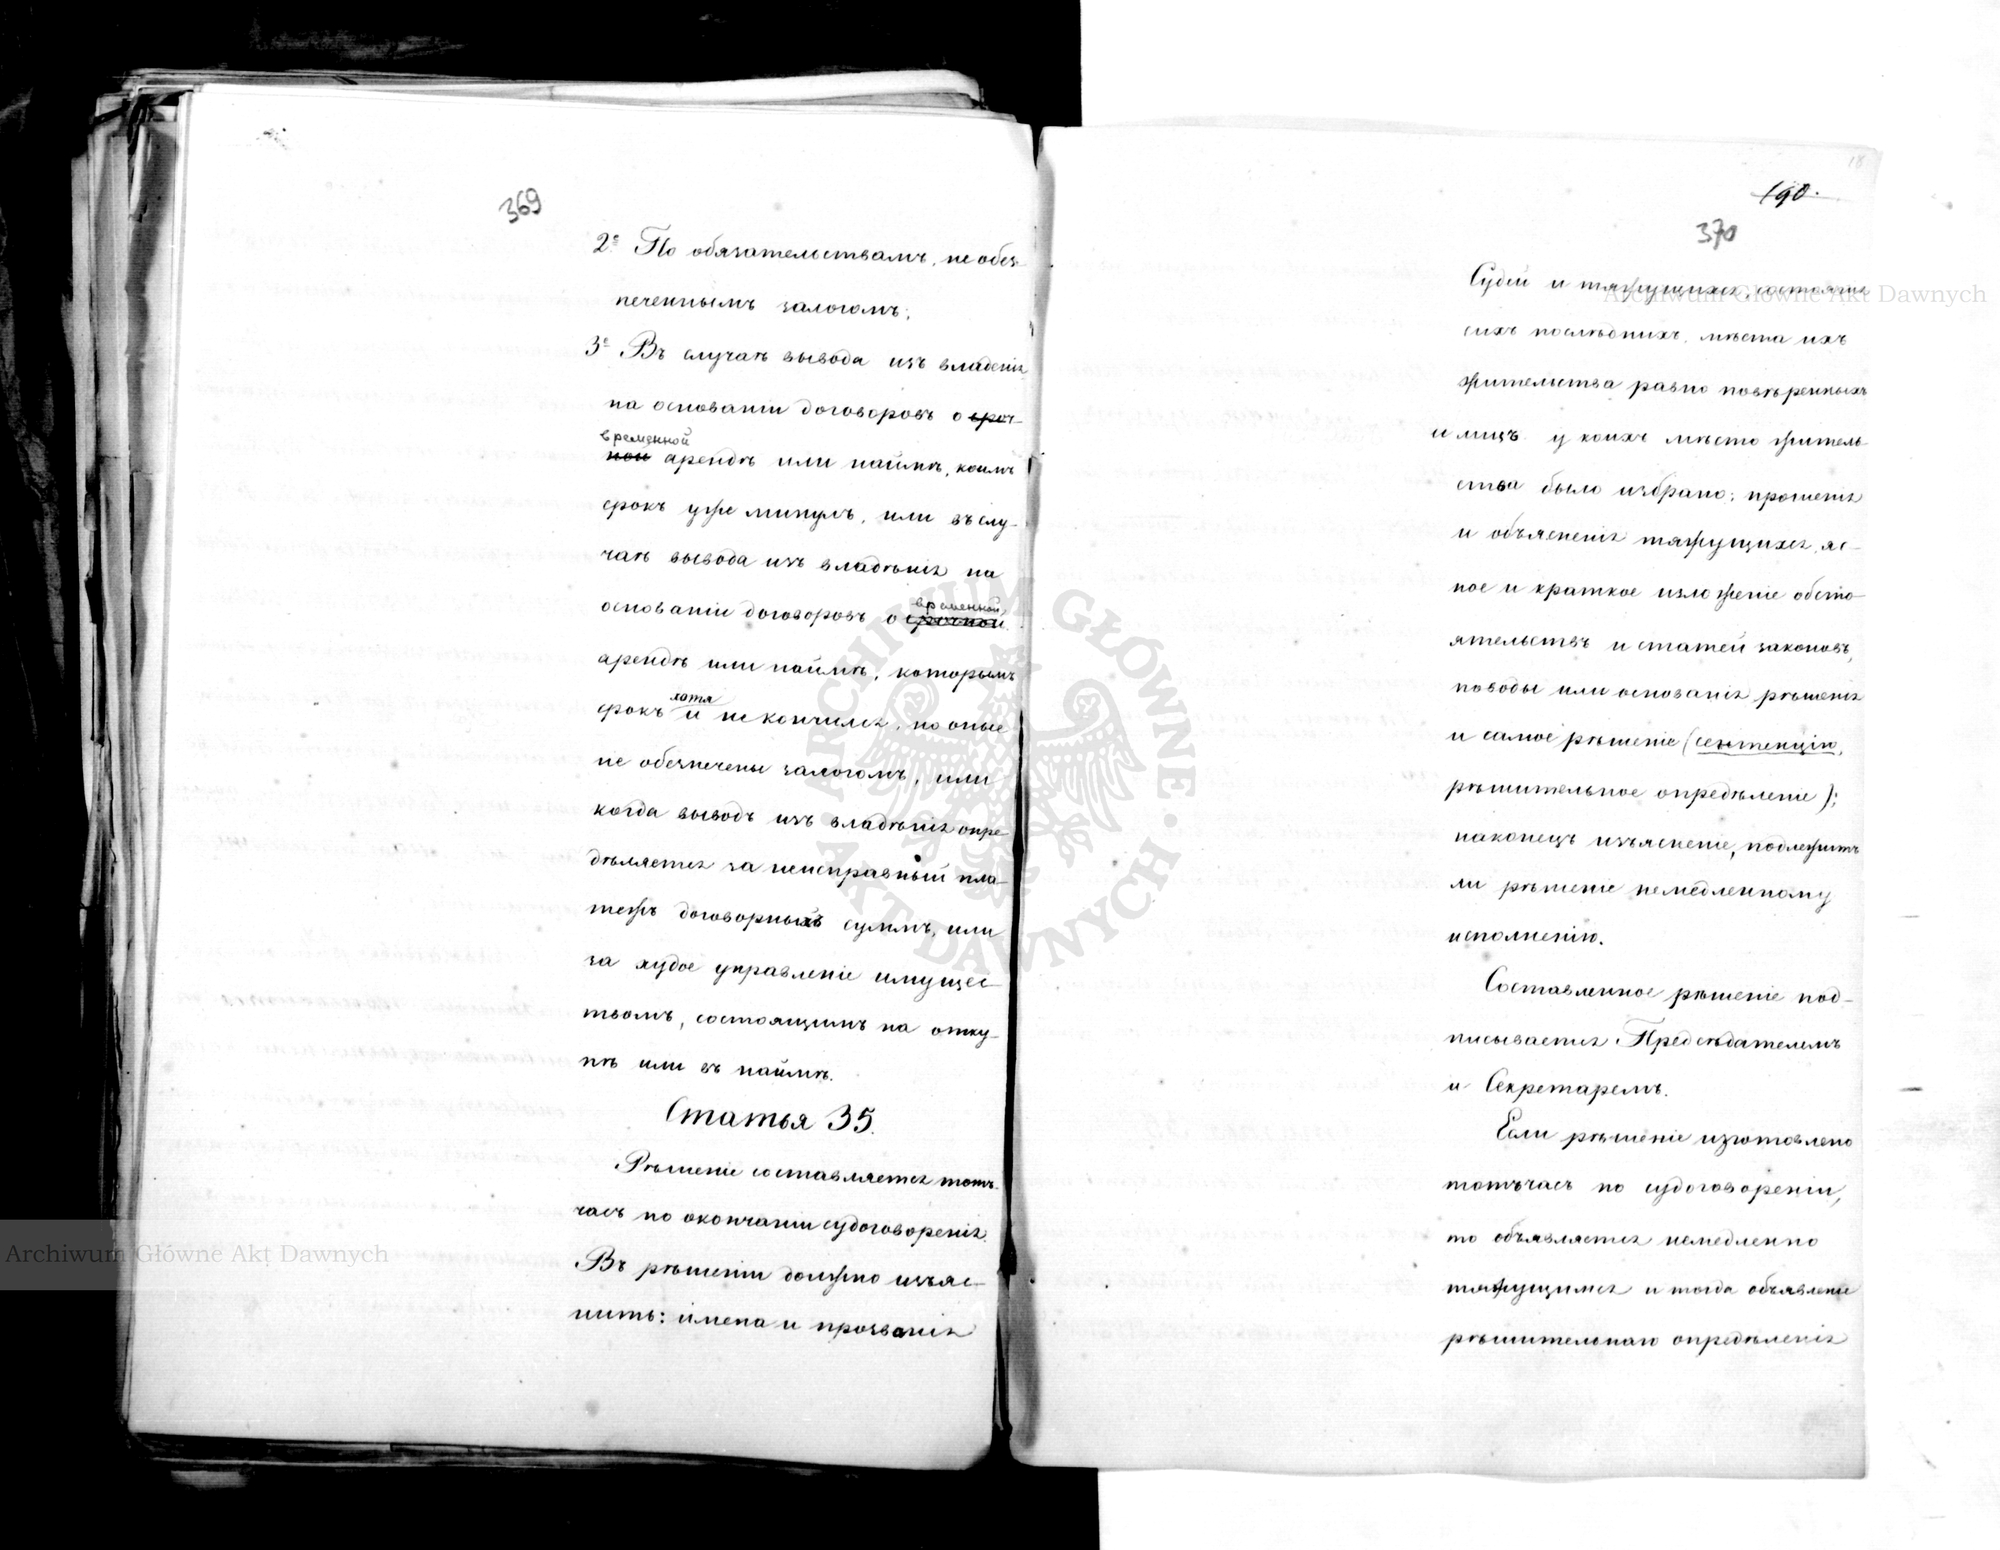 369
2е По обязательствамъ, не обез-
печеннымъ залогомъ;
3е Въ случаѣ вывода изъ владѣнія
на основаніи договоровъ о сроч-
временной
ной арендѣ или наймѣ, коимъ
срокъ уже минулъ, или въ слу-
чаѣ вывода изъ владѣнія на
временной
основаніи договоровъ о срочной
арендѣ или наймѣ, которымъ
хотя
срокъ и не кончился, но оные
не обезпечены залогомъ, или
когда выводъ изъ владѣнія опре-
дѣляется за неисправный пла-
тежъ договорныхъ суммъ, или
за худое управленіе имущес-
твомъ, состоящимъ на отку-
пѣ или въ наймѣ.
Статья 35.
Рѣшеніе составляется тотъ-
часъ по окончаніи судоговоренія.
Въ рѣшеніи должно изъяс-
нить: имена и прозванія
190.
370
Судей и тяжущихся, состояніе
сихъ послѣднихъ, мѣста ихъ
жительства равно повѣренныхъ
и лицъ у коихъ мѣсто житель-
ства было избрано; прошенія
и объясненія тяжущихся, яс-
ное и краткое изложеніе обсто-
ятельствъ и статей законовъ,
поводы или основанія рѣшенія
и самое рѣшеніе (сентенцію,
рѣшительное опредѣленіе);
наконецъ изъясненіе, подлежитъ
ли рѣшеніе немедленному
исполненію.
Составленное рѣшеніе под-
писывается Предсѣдателемъ
и Секретаремъ.
Если рѣшеніе изготовлено
тотъчасъ по судоговореніи,
то объявляется немедленно
тяжущимся и тогда объявленіе
рѣшительнаго опредѣленія
Archiwum Główne Akt Dawnych
Archiwum Główne Akt Dawnych
ARCHIWUM GŁÓWNE AKT DAWNYCH